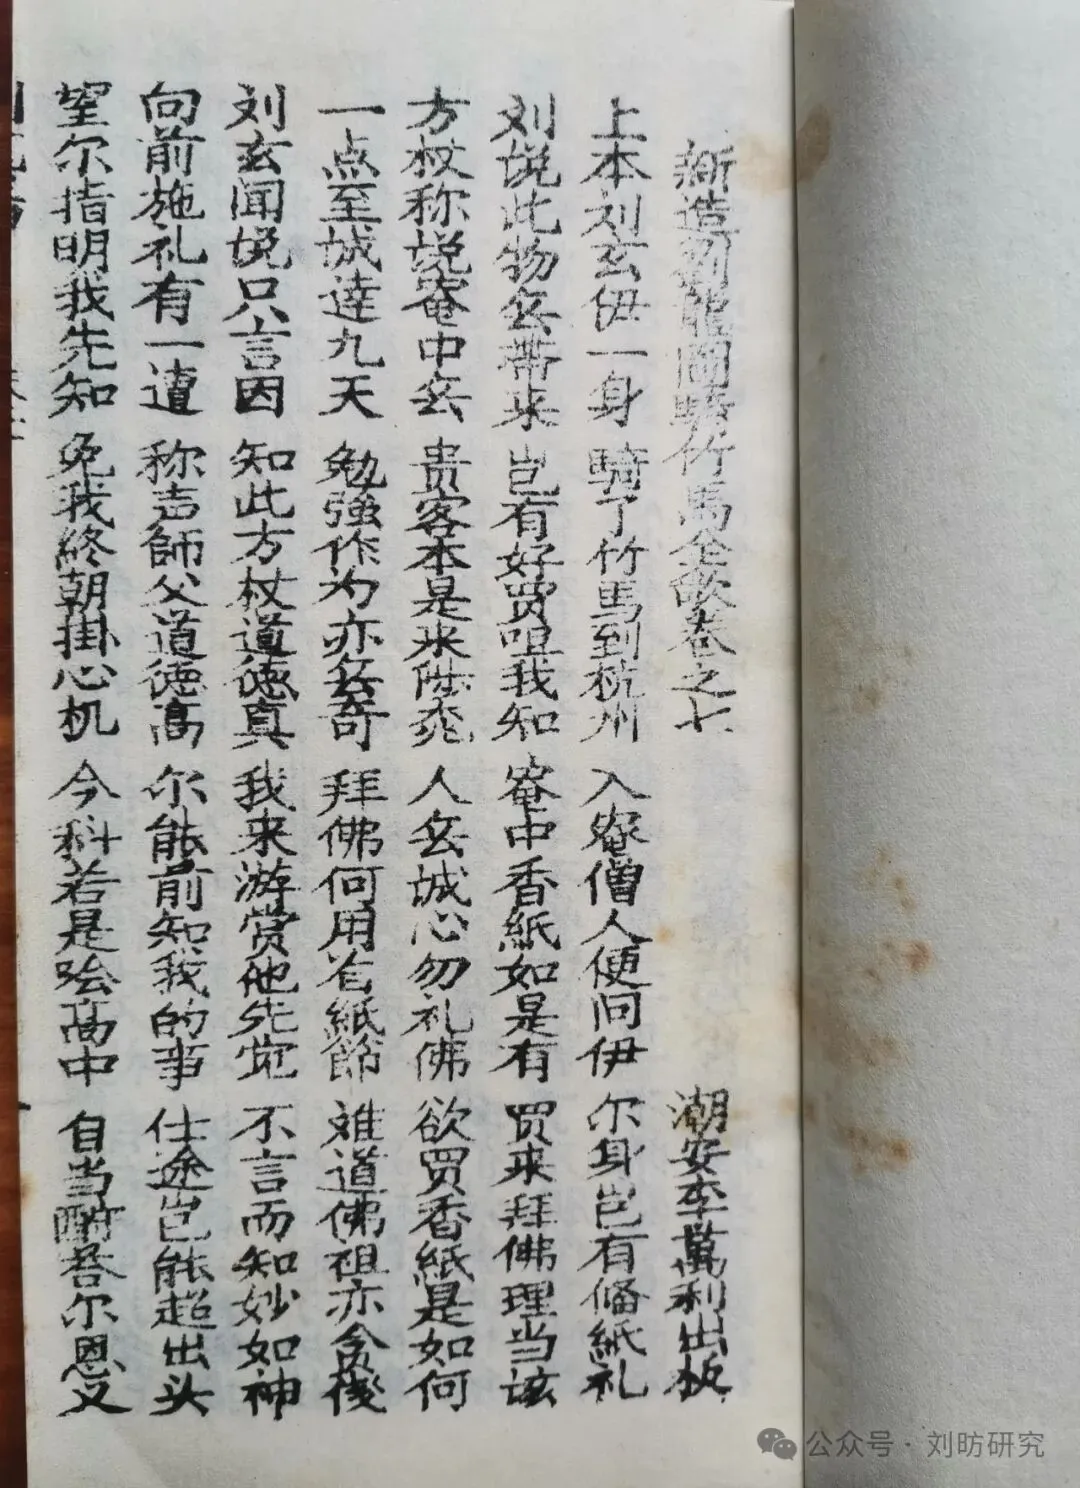 新造刘龍圖騎竹馬全歌卷之七 潮安李萬利出板
上本刘玄伊一身 騎了竹馬到杭州 入庵僧人便问伊 尔身岂有俻紙礼
刘説此物无帶来 岂有好買咀我知 庵中香紙如是有 買来拜佛理当该
方杖称説庵中无 贵客本是来 人无诚心勿礼佛 欲買香紙是如何
一点至诚達九天 勉強作为亦无奇 拜佛何用 紙節 难道佛祖亦貪
刘玄闻説只言因 知此方杖道德真 我来游赏他先觉 不言而知妙如神
向前施礼有一遭 称声師父道德高 尔能前知我的事 仕途岂能超出头
望尔指明我先知 免我終朝掛心机 今科若是 高中 自当酧答尔恩义
公众号·刘昉研究